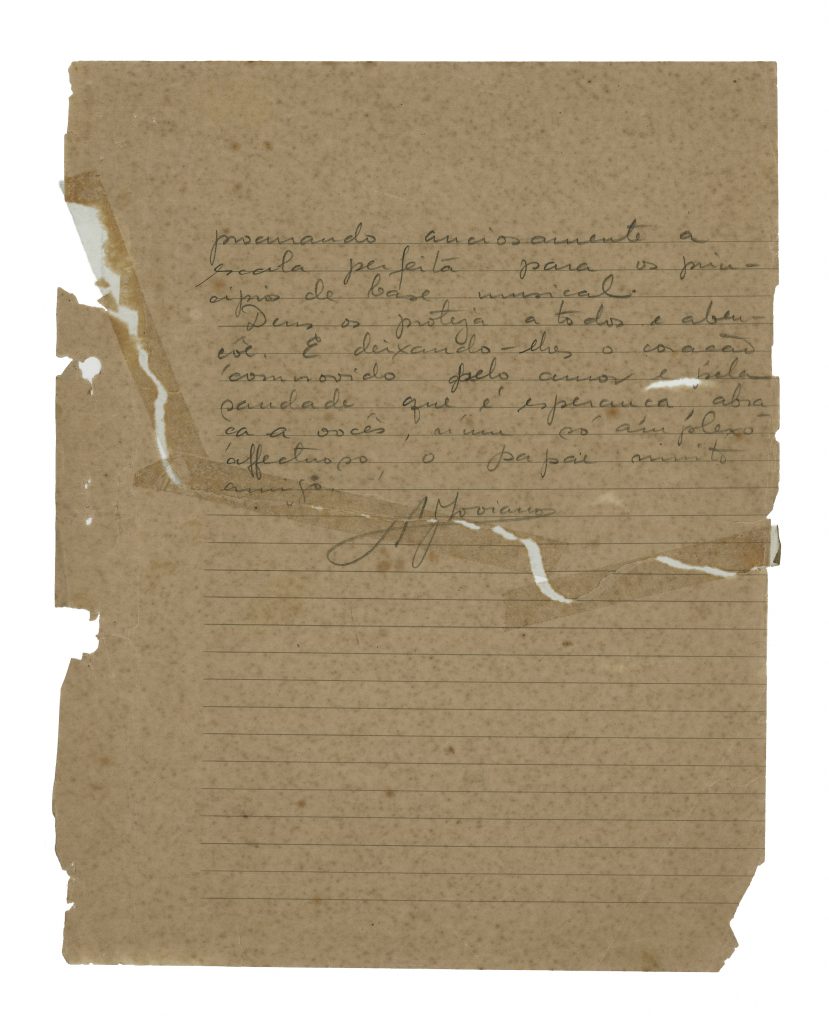 procurando anciosamente a
escala perfeita para os prin-
cipios de base musical.
Deus os proteja a todos e aben-
çôe. E deixando-lhes o coração
commovido pelo amor e pela
saudade que é esperança abra
ça a vocês, num só amplexo
affectuoso, o papae muito
amigo,
AJoviano